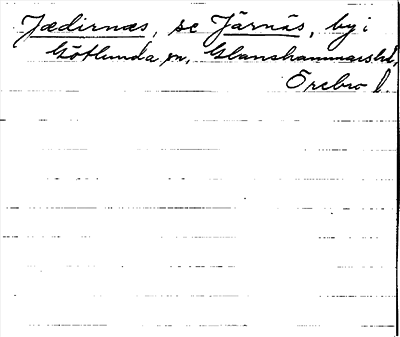 Jædirnæs, se Järnäs, by i
Götlunda sn, Glanshammarshd,
Örebro l.